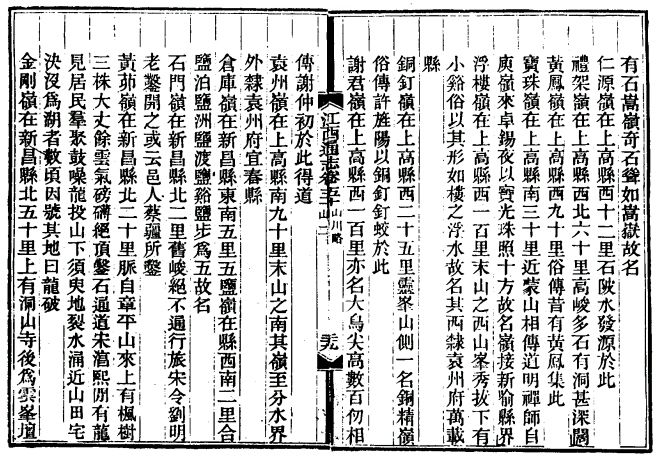 有石嵩嶺奇石聳如嵩嶽故名
仁源嶺在上高縣西十二里石陂水發源於此
禮架嶺在上高縣西北六十里高峻多石有洞甚深闊
黃鳳嶺在上高縣西九十里俗傳昔有黃鳳集此
寶珠嶺在上高縣南三十里近蒙山相傳道明禪師自
庾嶺來卓錫夜以寶光珠照十方故名嶺接新喻縣界
浮樓嶺在上高縣西一百里末山之西山峯秀拔下有
小谿俗以其形如樓之浮水故名其西隸袁州府萬載
縣
銅釘嶺在上高縣西二十五里靈峯山側一名銅精嶺
俗傳許旌陽以銅釘釘蛟於此
謝君嶺在上高縣西一百里亦名大烏尖高數百仞相
江西通志卷五十 山川略 山二
三九
傳謝仲初於此得道
袁州嶺在上高縣南九十里末山之南其嶺至分水界
外隸袁州府宜春縣
倉庫嶺在新昌縣東南五里五鹽嶺在縣西南二里合
鹽泊鹽洲鹽渡鹽谿鹽步爲五故名
石門嶺在新昌縣北二里舊峻絕不通行旅宋令劉明
老鑿開之或云邑人蔡疆所鑿
黃茆嶺在新昌縣北二十里脈自章平山來上有楓樹
三株大丈餘雲氣磅礡絕頂鑿石通道宋淳熙閒有龍
見居民羣聚鼓噪龍投山下須臾地裂水涌近山田宅
決沒爲湖者數頃因號其地曰龍破
金剛嶺在新昌縣北五十里上有洞山寺後爲雲峯壇